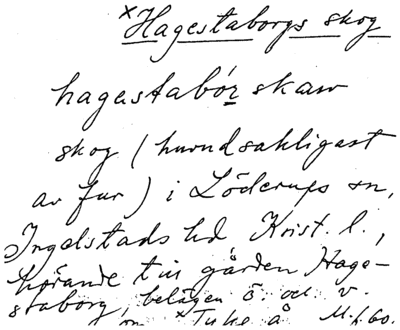 ×Hagestaborgs skog
hagastabór skaw
skog (huvudsakligast
av fur) i Löderups sn,
Ingelstads hd Krist. l.,
hörande till gården Hage-
staborg, belägen ö. och v.
om ×Tyke å M. f. 60.